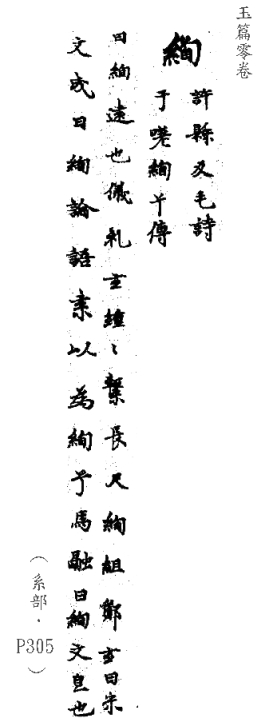 玉篇零卷
絢
許縣反毛詩
于嗟絢兮傳
曰絢遠也儀礼玄纁〻繫長尺絢組鄭玄曰采
文成曰絢論語素以為絢兮馬融曰絢文皃也
（系部．P305）